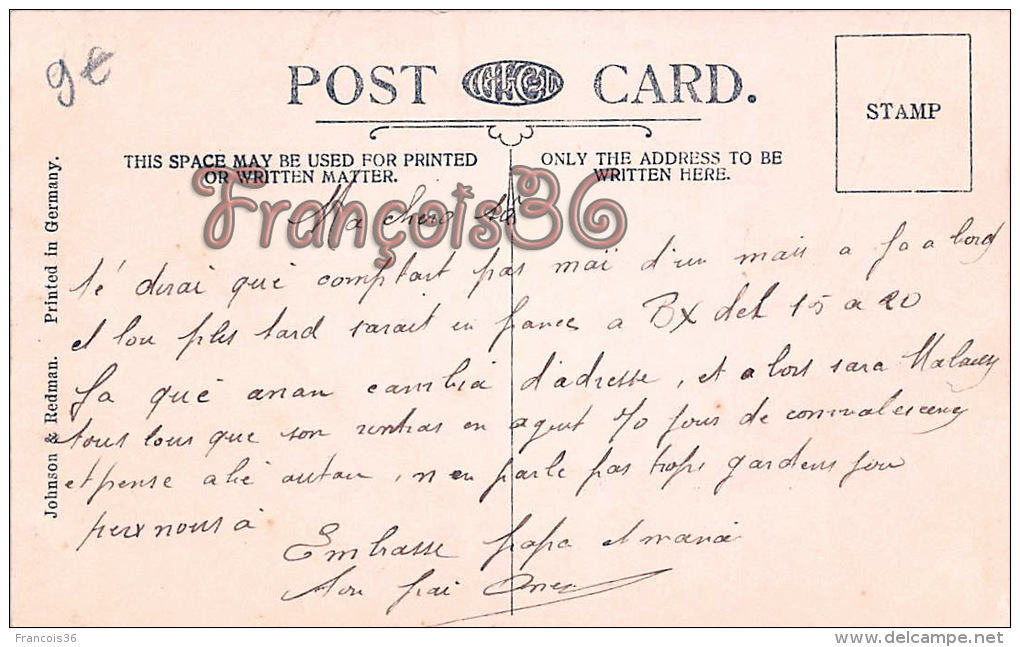 9€
POST CARD.
STAMP
THIS SPACE MAY BE USED FOR PRINTED
OR WRITTEN MATTER.
ONLY THE ADDRESS TO BE
WRITTEN HERE.
Johnson & Redman. Printed in Germany.
François36
Ma chero
té dirai qué comptait pas maï d'un mais a fa a bord
et lou plus tard sarait en france a Bx del 15 a 20
fa qué anan cambia d'adresse, et alors sara
tous lous que son rentras en agent 70 jours de convalescence
et pense alié autan, n en parle pas trop, gardens
per nous à
Embrasse papa et mama
Ton frai
Francois36
www.delcampe.net